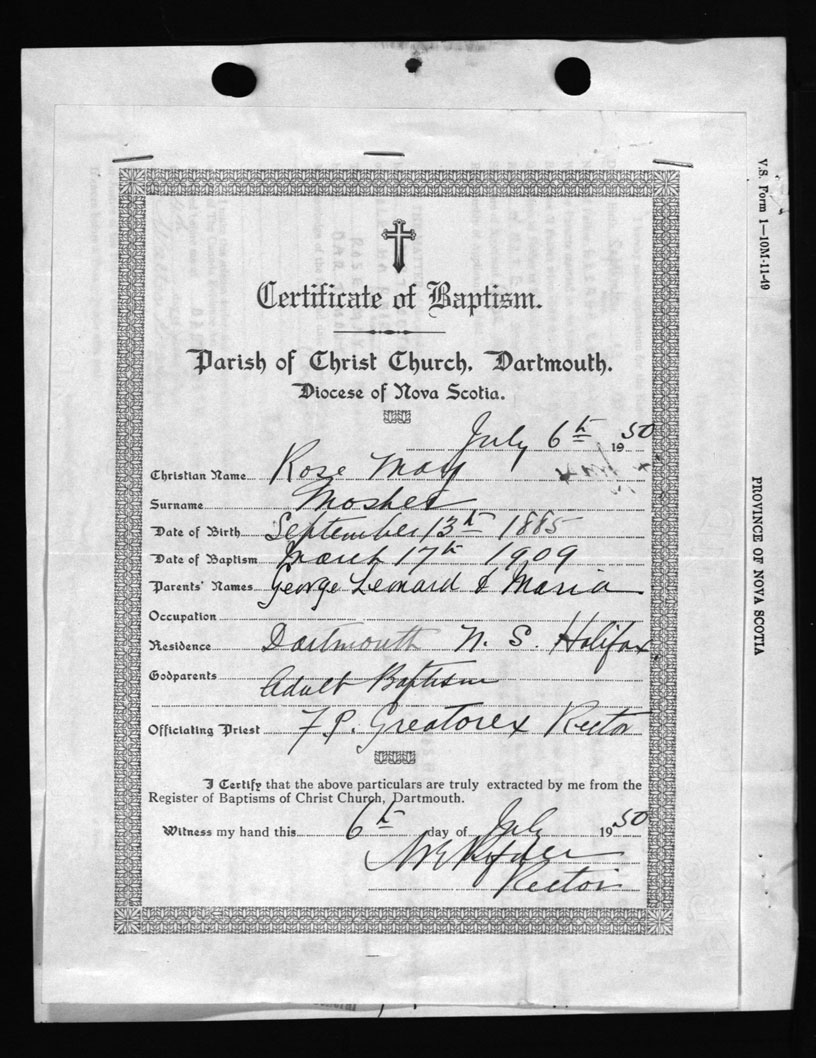 Certificate of Baptism.
Parish of Christ Church, Dartmouth.
Diocese of Nova Scotia.
July 6th 1950
Christian Name Rose May
Surname Mosher
Date of Birth September 13th 1885
Date of Baptism March 17th 1909
Parents' Names George Leonard & Maria
Occupation
Residence Dartmouth N. S. Halifax
Godparents Adult Baptism
Officiating Priest F P. Greatorex Rector
I Certify that the above particulars are truly extracted by me from the
Register of Baptisms of Christ Church, Dartmouth.
Witness my hand this 6th day of July 1950
Rector
V.S. Form 1—10M-11-49
PROVINCE OF NOVA SCOTIA